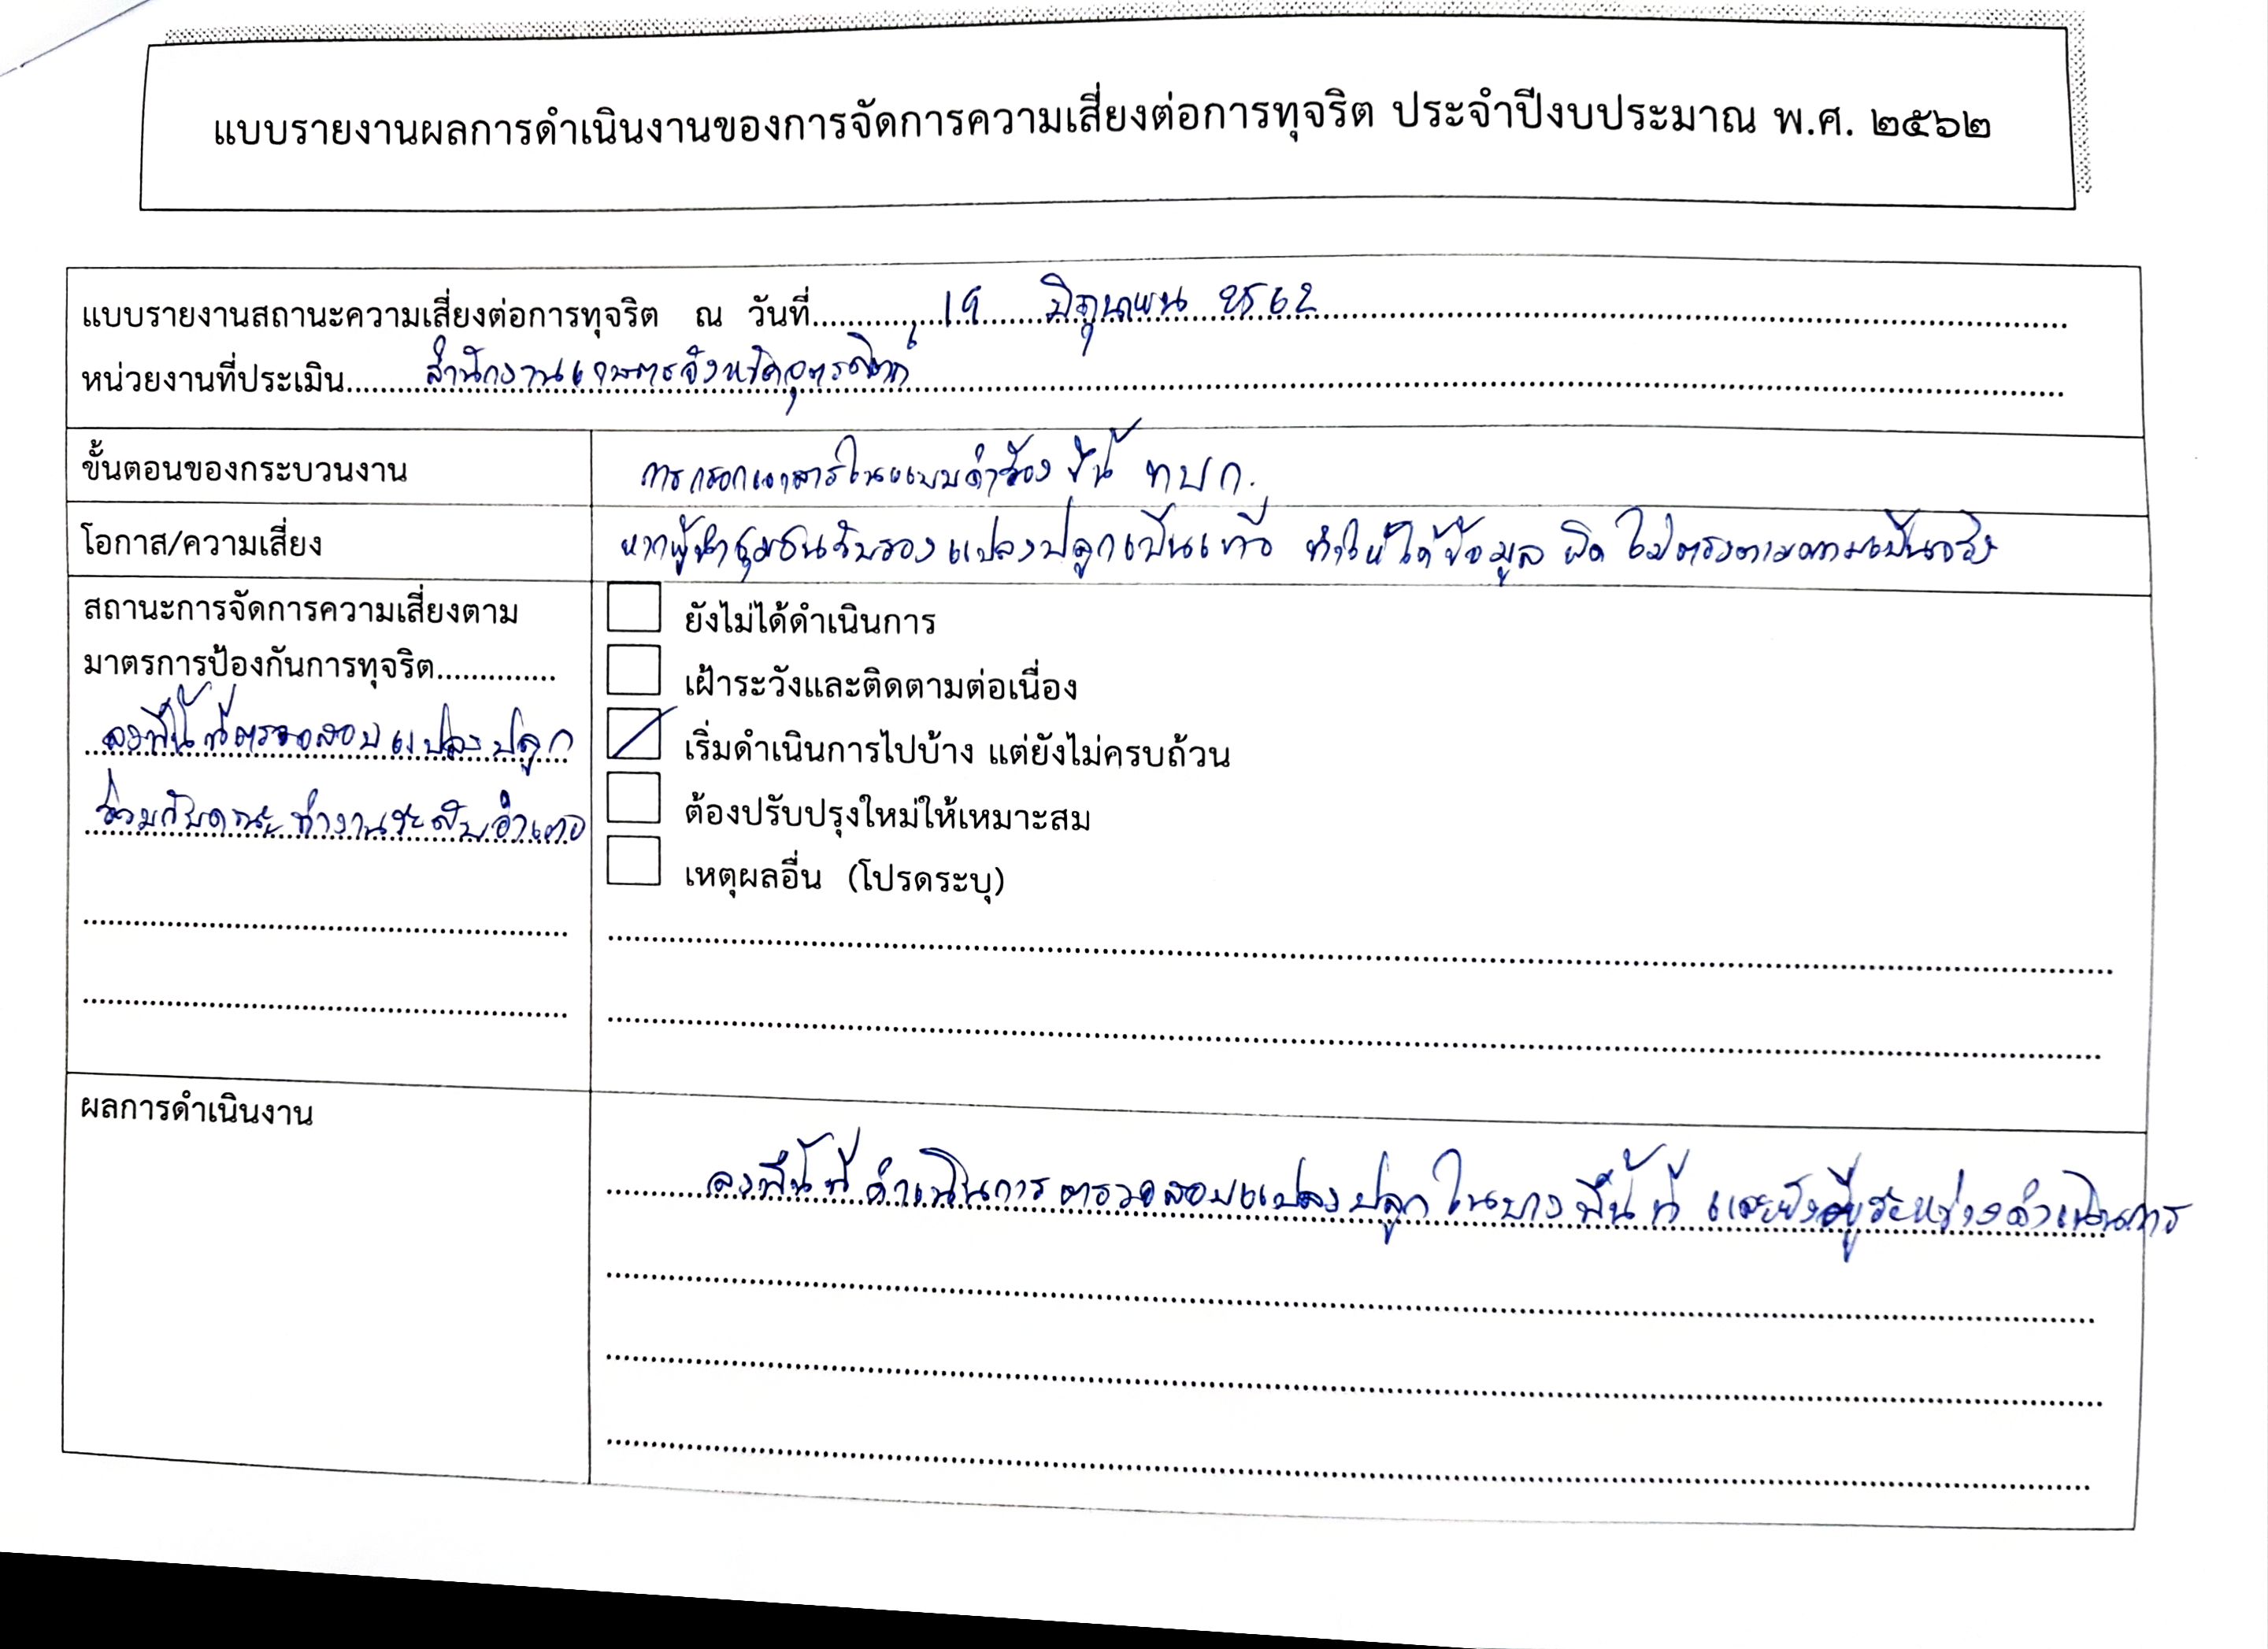 แบบรายงานผลการดำเนินงานของการจัดการความเสี่ยงต่อการทุจริต ประจำปีงบประมาณ พ.ศ. ๒๕๖๒
แบบรายงานสถานะความเสี่ยงต่อการทุจริต ณ วันที่ 19 มิถุนายน 2562
หน่วยงานที่ประเมิน สำนักงานเกษตรจังหวัดอุตรดิตถ์
ขั้นตอนของกระบวนงาน การกรอกเอกสารในแบบคำร้อง ขึ้น ทบก.
โอกาส/ความเสี่ยง หากผู้นำชุมชนรับรองแปลงปลูกเป็นเท็จ ทำให้ได้ข้อมูล ผิด ไม่ตรงตามความเป็นจริง
สถานะการจัดการความเสี่ยงตาม
มาตรการป้องกันการทุจริต
ลงพื้นที่ตรวจสอบแปลงปลูก
ร่วมกับคณะทำงานระดับอำเภอ
ยังไม่ได้ดำเนินการ
เฝ้าระวังและติดตามต่อเนื่อง
เริ่มดำเนินการไปบ้าง แต่ยังไม่ครบถ้วน
ต้องปรับปรุงใหม่ให้เหมาะสม
เหตุผลอื่น (โปรดระบุ)
ผลการดำเนินงาน
ลงพื้นที่ ดำเนินการตรวจสอบแปลงปลูก ในบางพื้นที่ และยังอยู่ระหว่างดำเนินการ